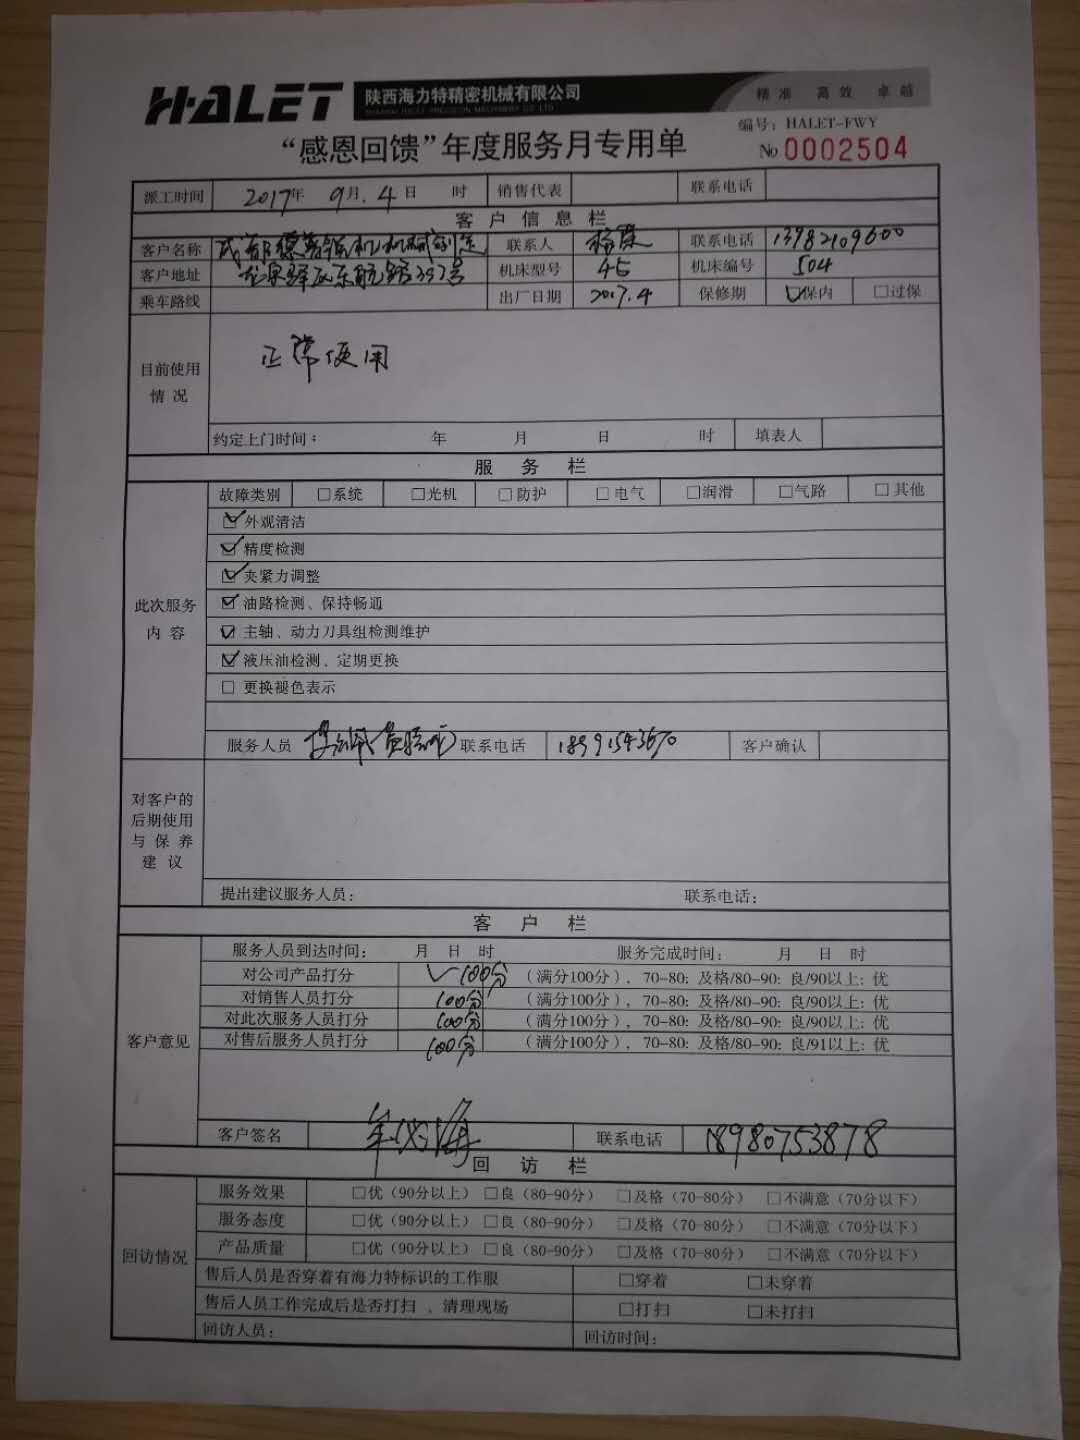 HALET 陕西海力特精密机械有限公司 精准 高效 卓越
编号：HALET-FWY
“感恩回馈”年度服务月专用单 No 0002504
派工时间 2017年 9月.4日 时 销售代表 联系电话
客户信息栏
客户名称 成都 联系人 杨 联系电话 13982109600
客户地址 龙泉驿区东航路397号 机床型号 45 机床编号 504
乘车路线 出厂日期 2017.4 保修期 ☑保内 □过保
目前使用情况 正常使用
约定上门时间： 年 月 日 时 填表人
服务栏
故障类别 □系统 □光机 □防护 □电气 □润滑 □气路 □其他
此次服务内容
☑外观清洁
☑精度检测
☑夹紧力调整
☑油路检测、保持畅通
☑主轴、动力刀具组检测维护
☑液压油检测、定期更换
□更换褪色表示
服务人员 联系电话 18991543670 客户确认
对客户的后期使用与保养建议
提出建议服务人员： 联系电话：
客户栏
客户意见
服务人员到达时间： 月 日 时 服务完成时间： 月 日 时
对公司产品打分 ✓100分 （满分100分），70-80：及格/80-90：良/90以上：优
对销售人员打分 100分 （满分100分），70-80：及格/80-90：良/90以上：优
对此次服务人员打分 100分 （满分100分），70-80：及格/80-90：良/90以上：优
对售后服务人员打分 100分 （满分100分），70-80：及格/80-90：良/91以上：优
客户签名 海 联系电话 18980753878
回访栏
回访情况
服务效果 □优（90分以上） □良（80-90分） □及格（70-80分） □不满意（70分以下）
服务态度 □优（90分以上） □良（80-90分） □及格（70-80分） □不满意（70分以下）
产品质量 □优（90分以上） □良（80-90分） □及格（70-80分） □不满意（70分以下）
售后人员是否穿着有海力特标识的工作服 □穿着 □未穿着
售后人员工作完成后是否打扫、清理现场 □打扫 □未打扫
回访人员： 回访时间：